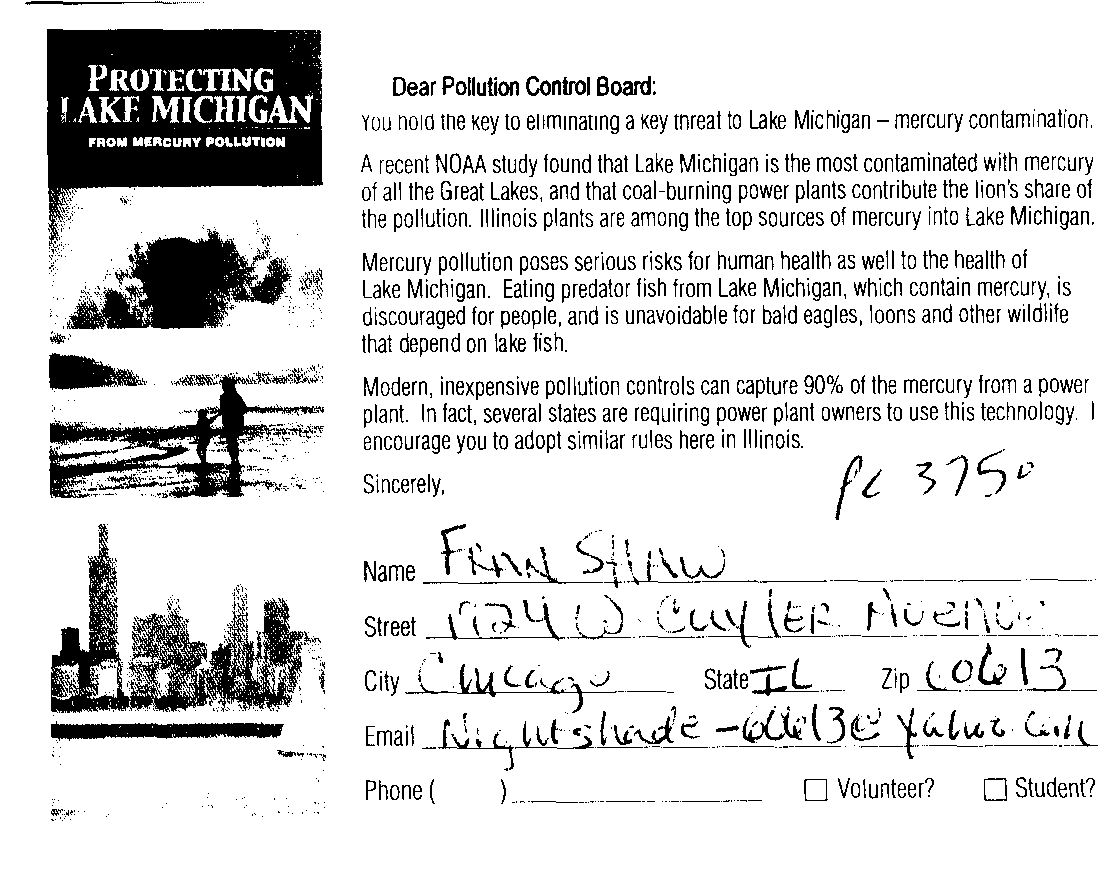 PROTECTING
LAKE MICHIGAN
FROM MERCURY POLLUTION
Dear Pollution Control Board:
You hold the key to eliminating a key threat to Lake Michigan – mercury contamination.
A recent NOAA study found that Lake Michigan is the most contaminated with mercury
of all the Great Lakes, and that coal-burning power plants contribute the lion's share of
the pollution. Illinois plants are among the top sources of mercury into Lake Michigan.
Mercury pollution poses serious risks for human health as well to the health of
Lake Michigan. Eating predator fish from Lake Michigan, which contain mercury, is
discouraged for people, and is unavoidable for bald eagles, loons and other wildlife
that depend on lake fish.
Modern, inexpensive pollution controls can capture 90% of the mercury from a power
plant. In fact, several states are requiring power plant owners to use this technology. I
encourage you to adopt similar rules here in Illinois.
Sincerely,
PC 3750
Name FRAN SHAW
Street 1924 W. CUYLER AVENUE
City Chicago State IL Zip 60613
Email Nightshade-60613@yahoo.com
Phone ( )
Volunteer? Student?